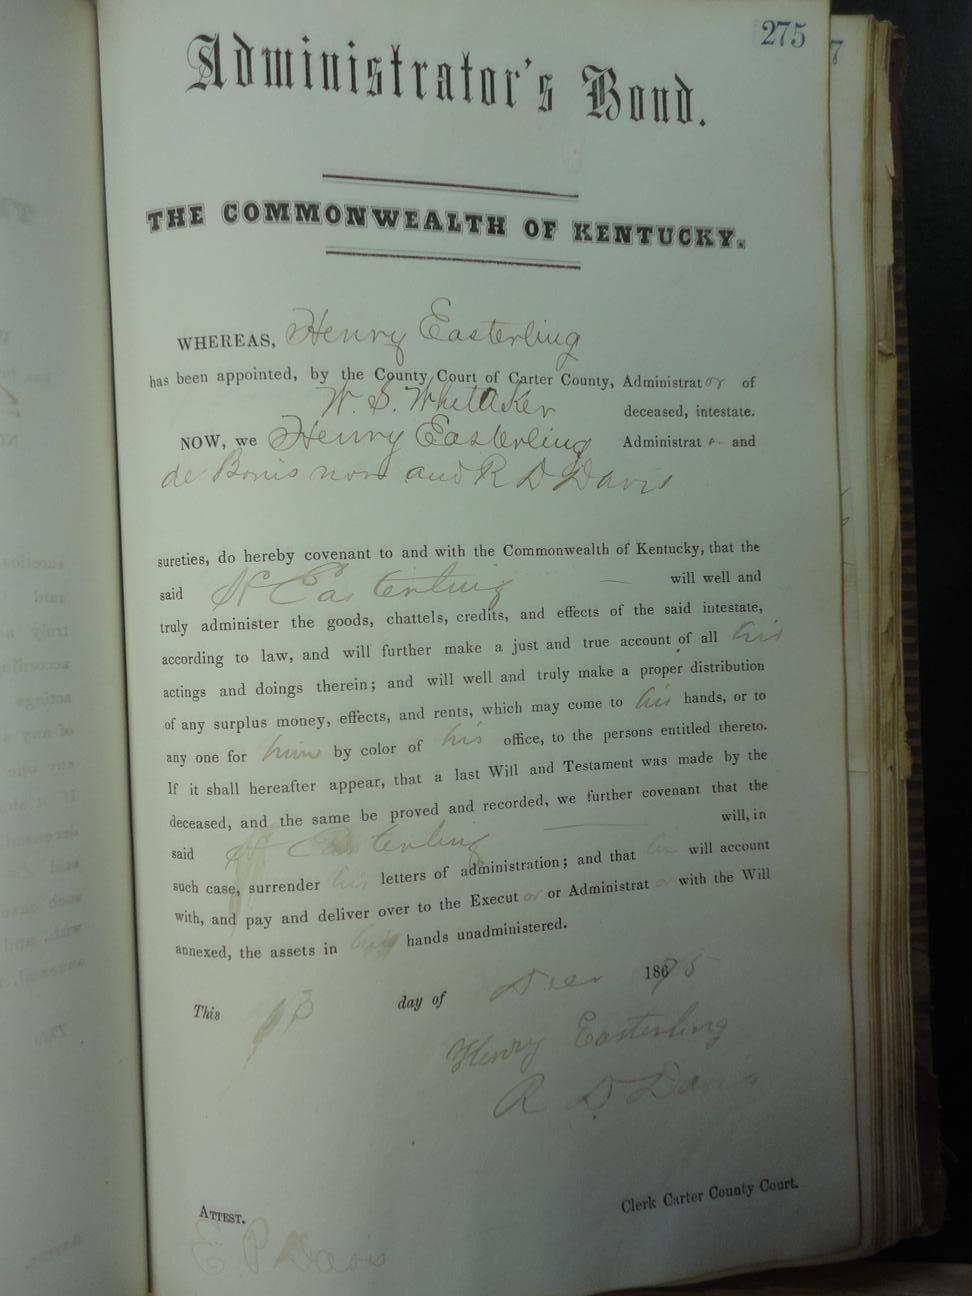 275
7
Administrator's Bond.
THE COMMONWEALTH OF KENTUCKY.
WHEREAS, Henry Easterling
has been appointed, by the County Court of Carter County, Administrator of
W. S. Whitaker deceased, intestate.
NOW, we Henry Easterling Administrat and
de Bonis non and R D Davis
sureties, do hereby covenant to and with the Commonwealth of Kentucky, that the
said H Easterling — will well and
truly administer the goods, chattels, credits, and effects of the said intestate,
according to law, and will further make a just and true account of all his
actings and doings therein; and will well and truly make a proper distribution
of any surplus money, effects, and rents, which may come to his hands, or to
any one for him by color of his office, to the persons entitled thereto.
If it shall hereafter appear, that a last Will and Testament was made by the
deceased, and the same be proved and recorded, we further covenant that the
said H Easterling — will, in
such case, surrender his letters of administration; and that he will account
with, and pay and deliver over to the Executor or Administrator with the Will
annexed, the assets in his hands unadministered.
This 13 day of 1875
Henry Easterling
R D Davis
Clerk Carter County Court.
ATTEST.